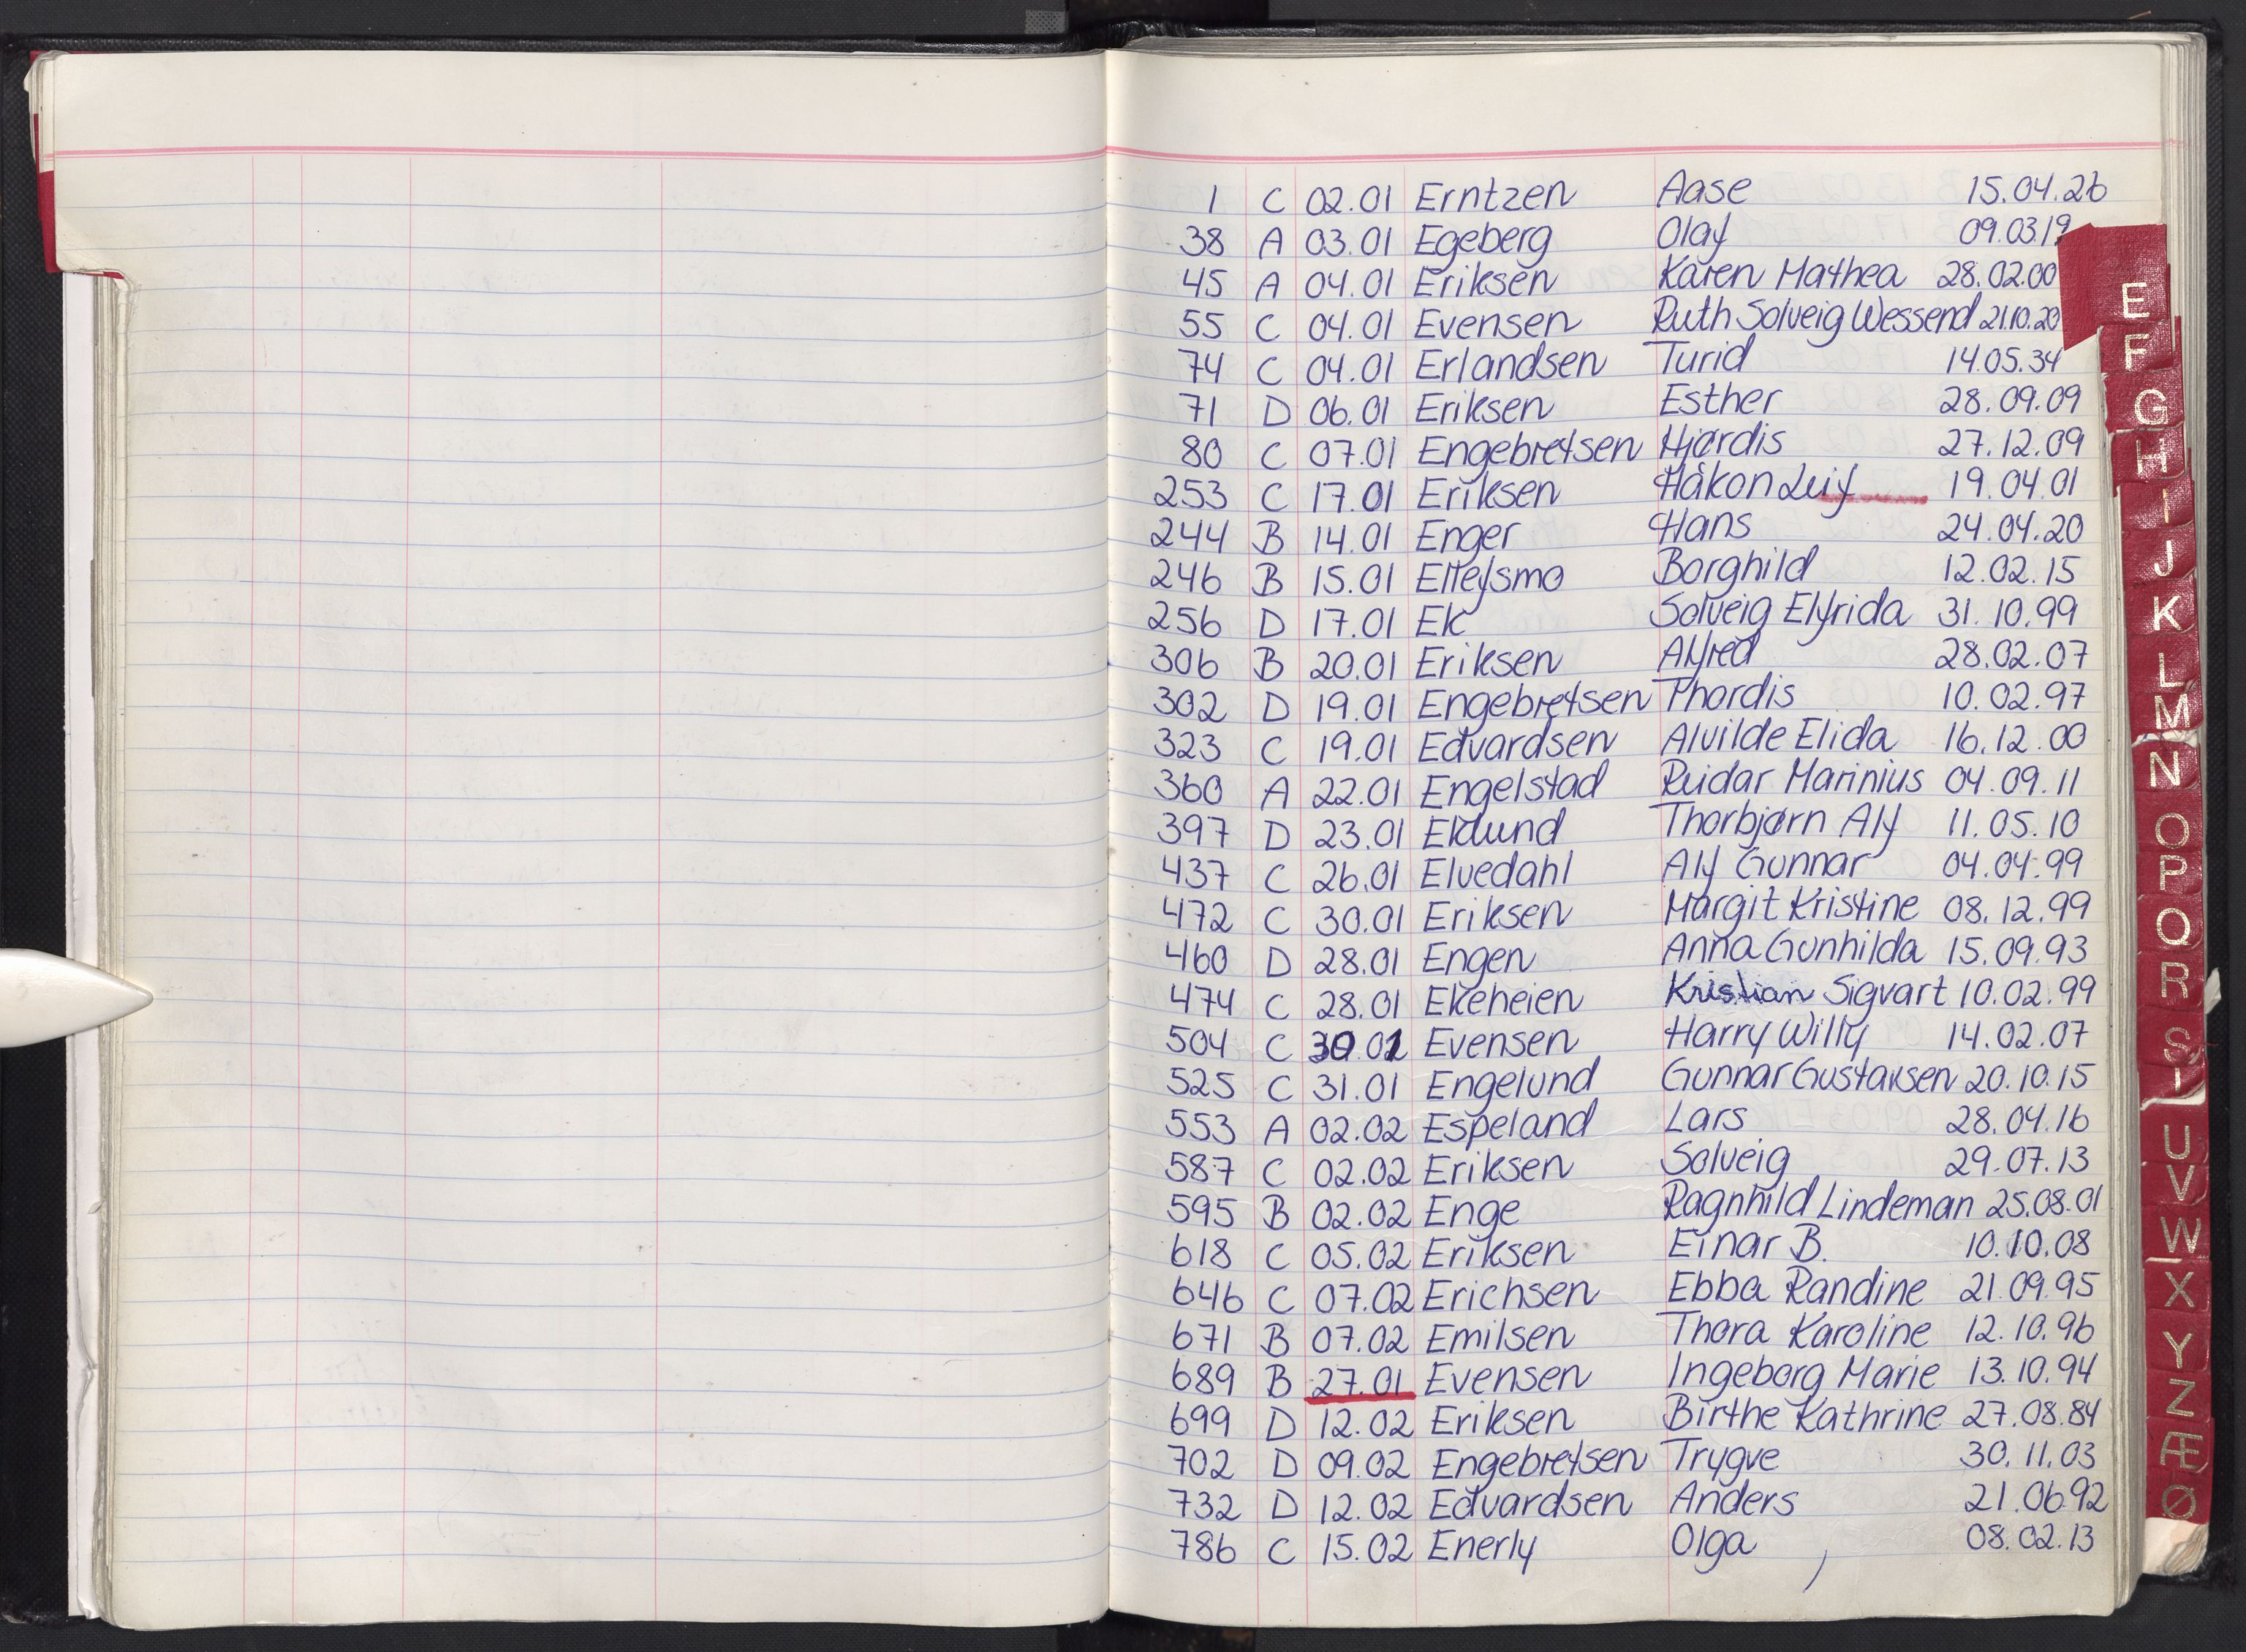 1 C 02.01 Erntzen Aase 15.04.26
38 A 03.01 Egeberg Olaf 09.03.19
45 A 04.01 Eriksen Karen Mathea 28.02.00
55 C 04.01 Evensen Ruth Solveig Wessend 21.10.20
74 C 04.01 Erlandsen Turid 14.05.34
71 D 06.01 Eriksen Esther 28.09.09
80 C 07.01 Engebretsen Hjørdis 27.12.09
253 C 17.01 Eriksen Håkon Leif 19.04.01
244 B 14.01 Enger Hans 24.04.20
246 B 15.01 Elfefsmo Borghild 12.02.15
256 D 17.01 Ek Solveig Elfrida 31.10.99
306 B 20.01 Eriksen Alfred 28.02.07
302 D 19.01 Engebretsen Thordis 10.02.97
323 C 19.01 Edvardsen Alvilde Elida 16.12.00
360 A 22.01 Engelstad Reidar Marinius 04.09.11
397 D 23.01 Eklund Thorbjørn Alf 11.05.10
437 C 26.01 Elvedahl Alf Gunnar 04.04.99
472 C 30.01 Eriksen Margit Kristine 08.12.99
460 D 28.01 Engen Anna Gunhilda 15.09.93
474 C 28.01 Ekeheien Kristian Sigvart 10.02.99
504 C 30.01 Evensen Harry Willy 14.02.07
525 C 31.01 Engelund Gunnar Gustavsen 20.10.15
553 A 02.02 Espeland Lars 28.04.16
587 C 02.02 Eriksen Solveig 29.07.13
595 B 02.02 Enge Ragnhild Lindeman 25.08.01
618 C 05.02 Eriksen Einar B. 10.10.08
646 C 07.02 Erichsen Ebba Randine 21.09.95
671 B 07.02 Emilsen Thora Karoline 12.10.96
689 B 27.01 Evensen Ingeborg Marie 13.10.94
699 D 12.02 Eriksen Birthe Kathrine 27.08.84
702 D 09.02 Engebretsen Trygve 30.11.03
732 D 12.02 Edvardsen Anders 21.06.92
786 C 15.02 Enerly Olga 08.02.13
E
F
G
H
I
J
K
L
M
N
O
P
Q
R
S
T
U
V
W
X
Y
Z
Æ
Ø